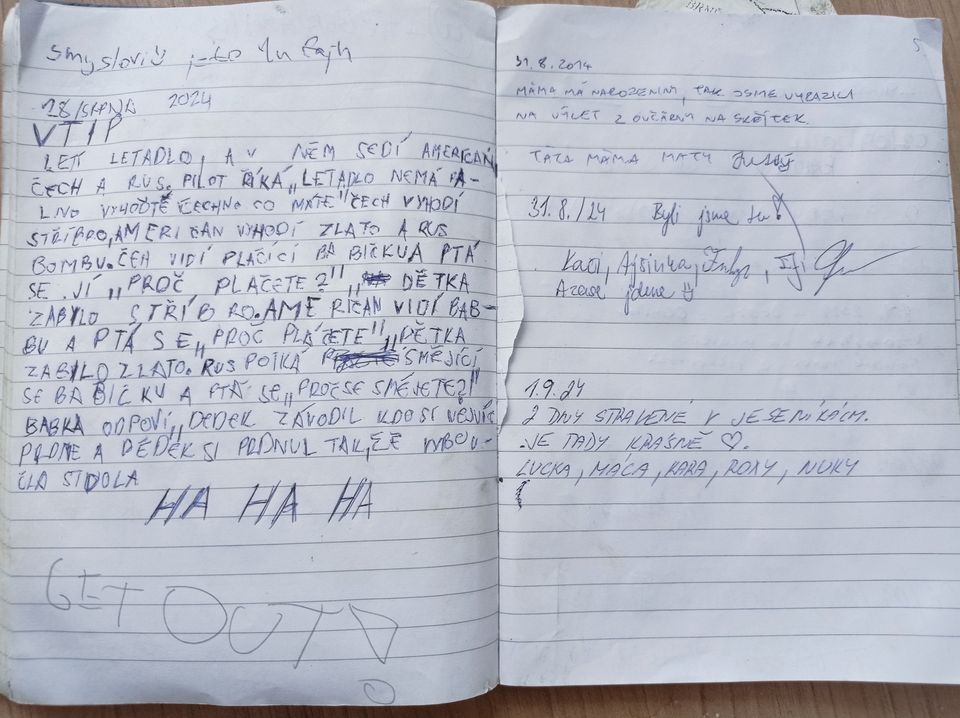 smyslovič je to tu fajn
28/SRPNA 2024
VTIP
LETÍ LETADLO, A V NĚM SEDÍ AMERIČAN
ČECH A RUS. PILOT ŘÍKÁ „LETADLO NEMÁ PA-
LIVO VYHOĎTĚ ČECHNO CO MÁTE" ČECH VYHODÍ
STŘÍBRO, AMERIČAN VYHODÍ ZLATO A RUS
BOMBU. ČEH VIDÍ PLAČÍCÍ BABIČKU A PTÁ
SE JÍ „PROČ PLAČETE?" „DĚTKA
ZABYLO STŘÍBRO. AMERIČAN VIDÍ BAB-
BU A PTÁ SE „PROČ PLÁČETE" „DĚTKA
ZABILO ZLATO. RUS POTKÁ SMEJÍCÍ
SE BABIČKU A PTÁ SE „PROČ SE SMĚJETE?"
BABKA ODPOVÍ „DEDEK ZÁVODIL KDO SI NEJVÍC
PRDNE A DĚDEK SI PRDNUL TAK, ŽE VYBOU-
CHLA STODOLA
HA HA HA
GET OUT!
5
31.8.2014
MÁMA MÁ NAROZENINY, TAK JSME VYRAZILI
NA VÝLET Z OVČÁRNY NA SKŘÍTEK.
TÁTA MÁMA MATY
31.8./24 Byli jsme tu!
Kači, Ajšinka,
A zase jdeme
1.9.24
2 DNY STRÁVENÉ V JESENÍKÁCH.
JE TADY KRÁSNĚ ♡.
LUCKA, MÁCA, KARA, ROXY, NUKY